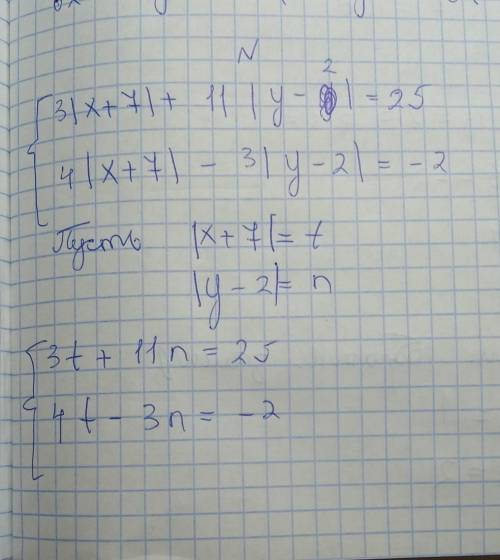 N
3|x+7| + 11|y-2| = 25
4|x+7| - 3|y-2| = -2
Пусть |x+7|= t
|y-2|= n
3t + 11n = 25
4t - 3n = -2